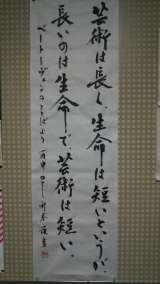 芸術は長く、生命は短いというが、
長いのは生命で、芸術は短い。
ベートーヴェンのことばより